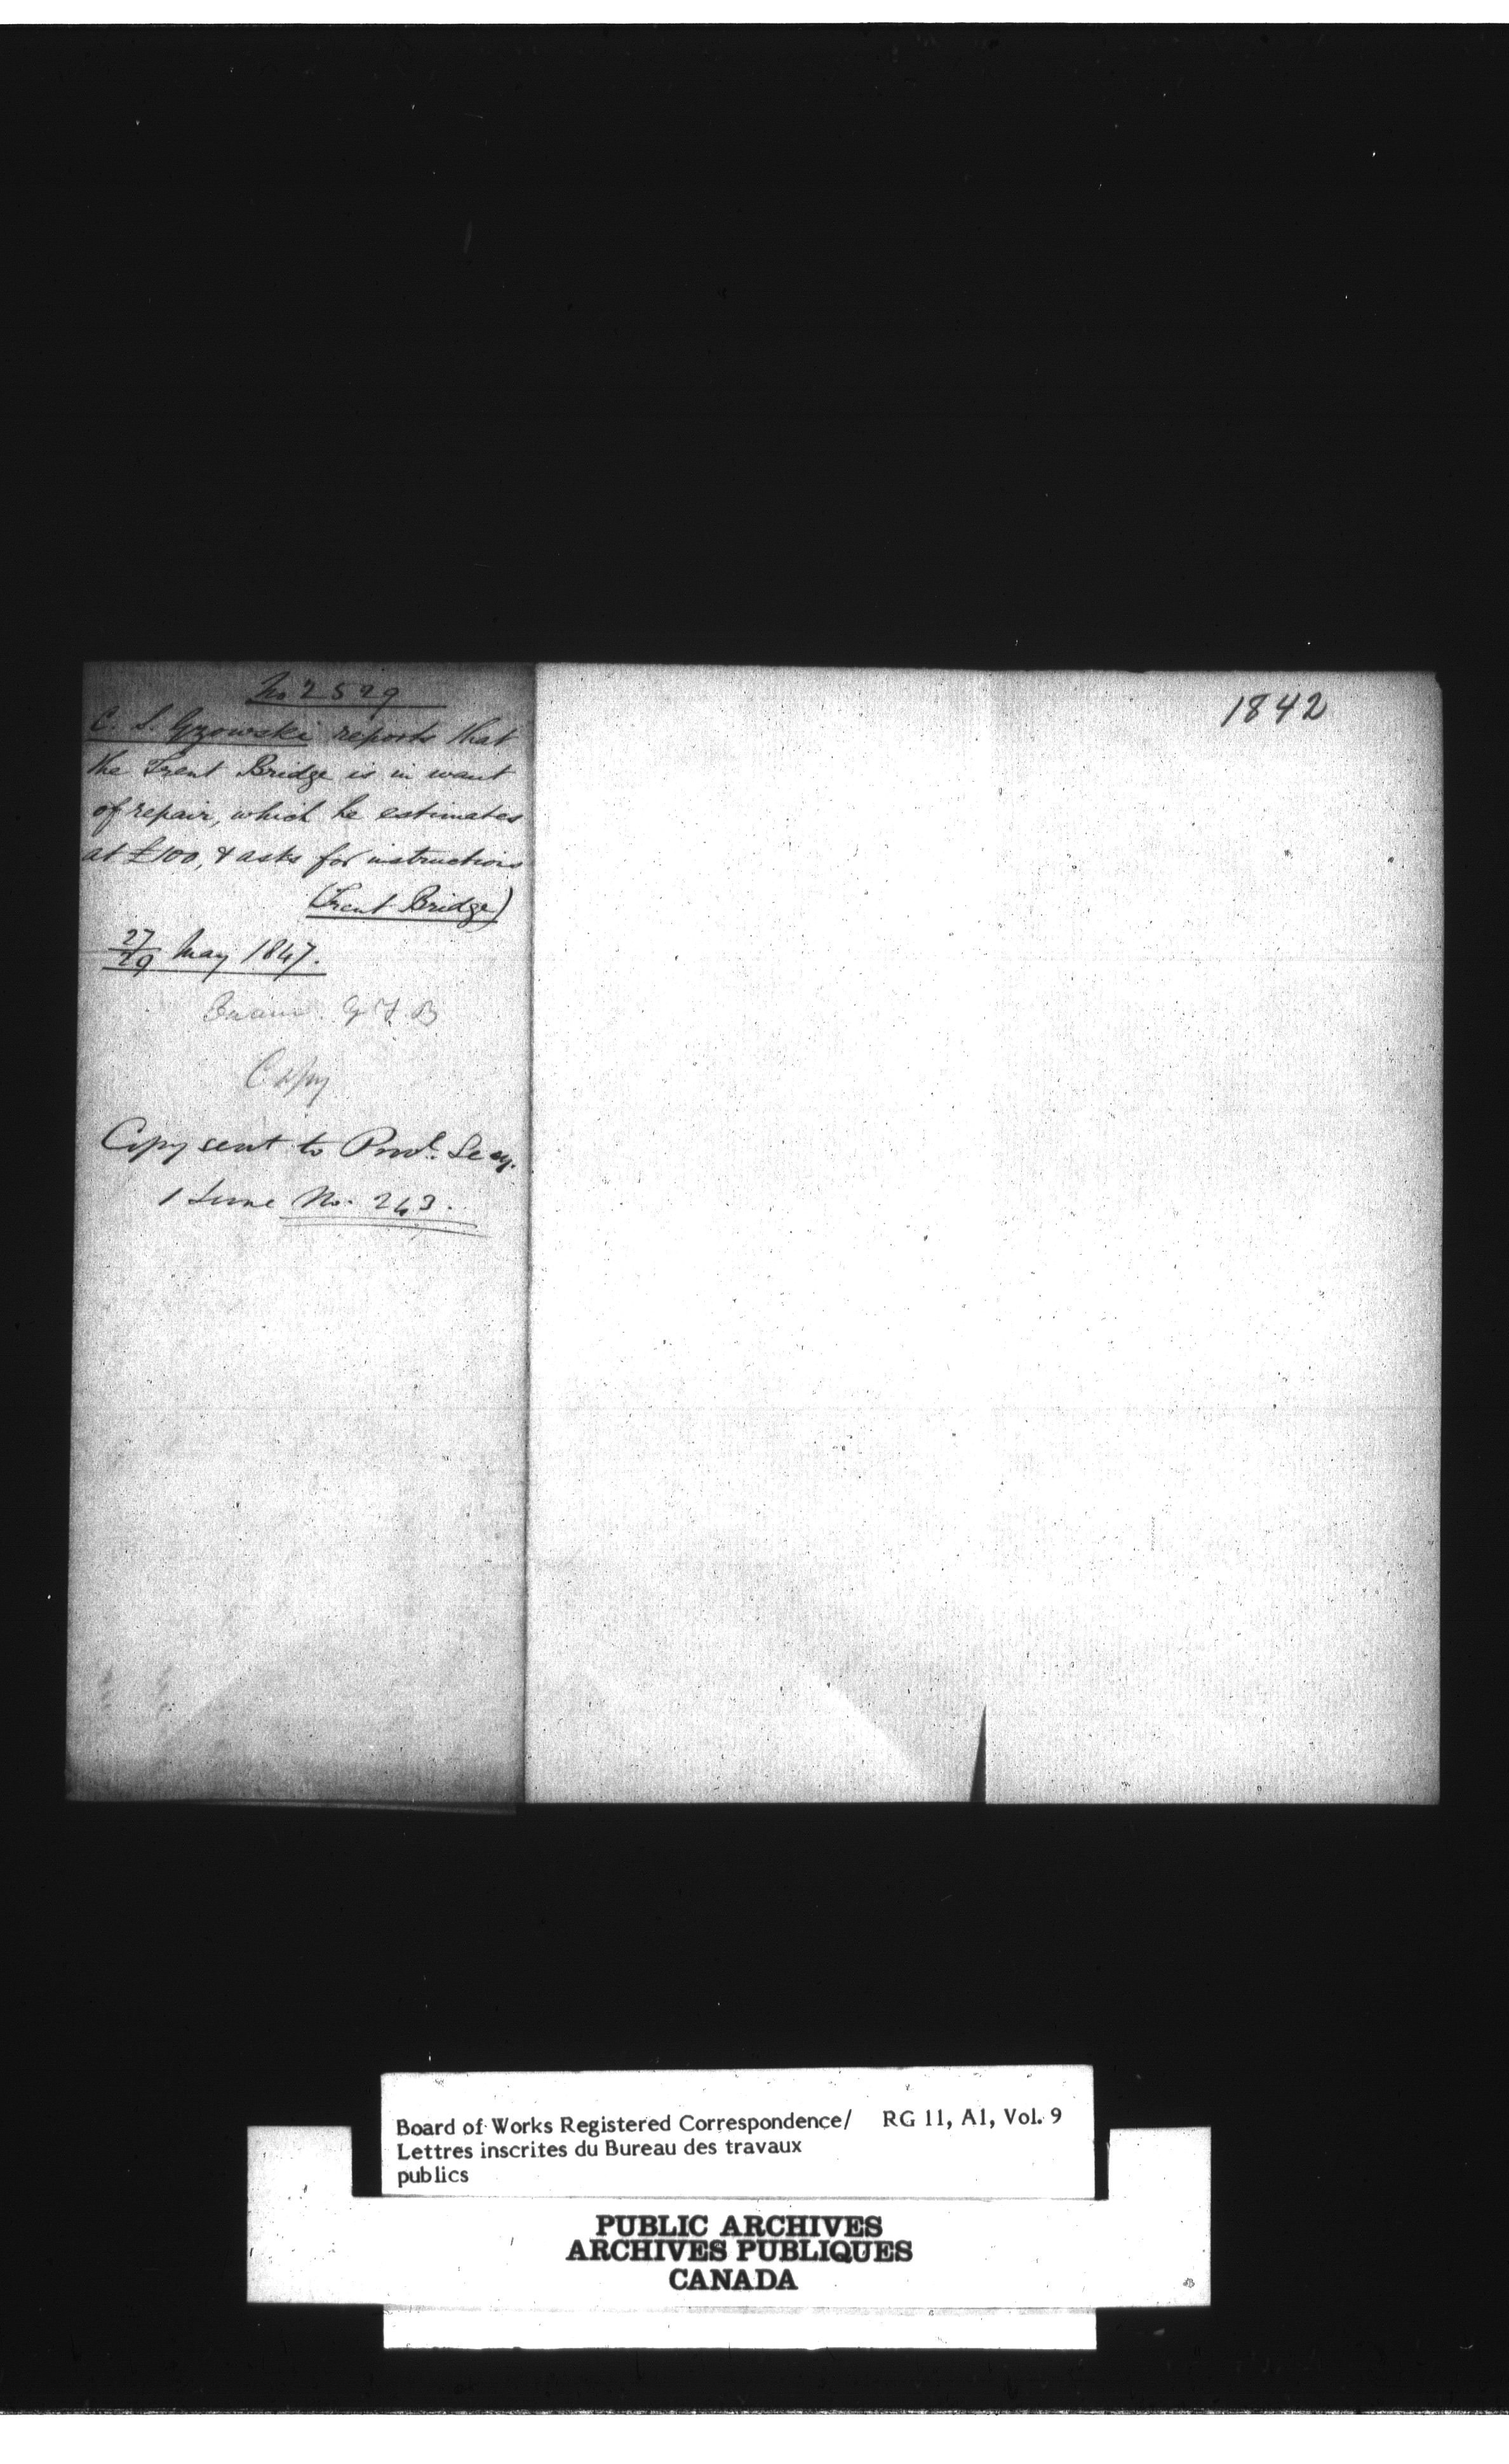 No 2599
C. S. Gzowski reports that
the Trent Bridge is in want
of repair, which he estimates
at £100, & asks for instructions
(Trent Bridge)
27/29 May 1847.
Copy
Copy sent to Provl. Secy.
1 June No. 243.
1842
Board of Works Registered Correspondence/ RG 11, A1, Vol. 9
Lettres inscrites du Bureau des travaux
publics
PUBLIC ARCHIVES
ARCHIVES PUBLIQUES
CANADA